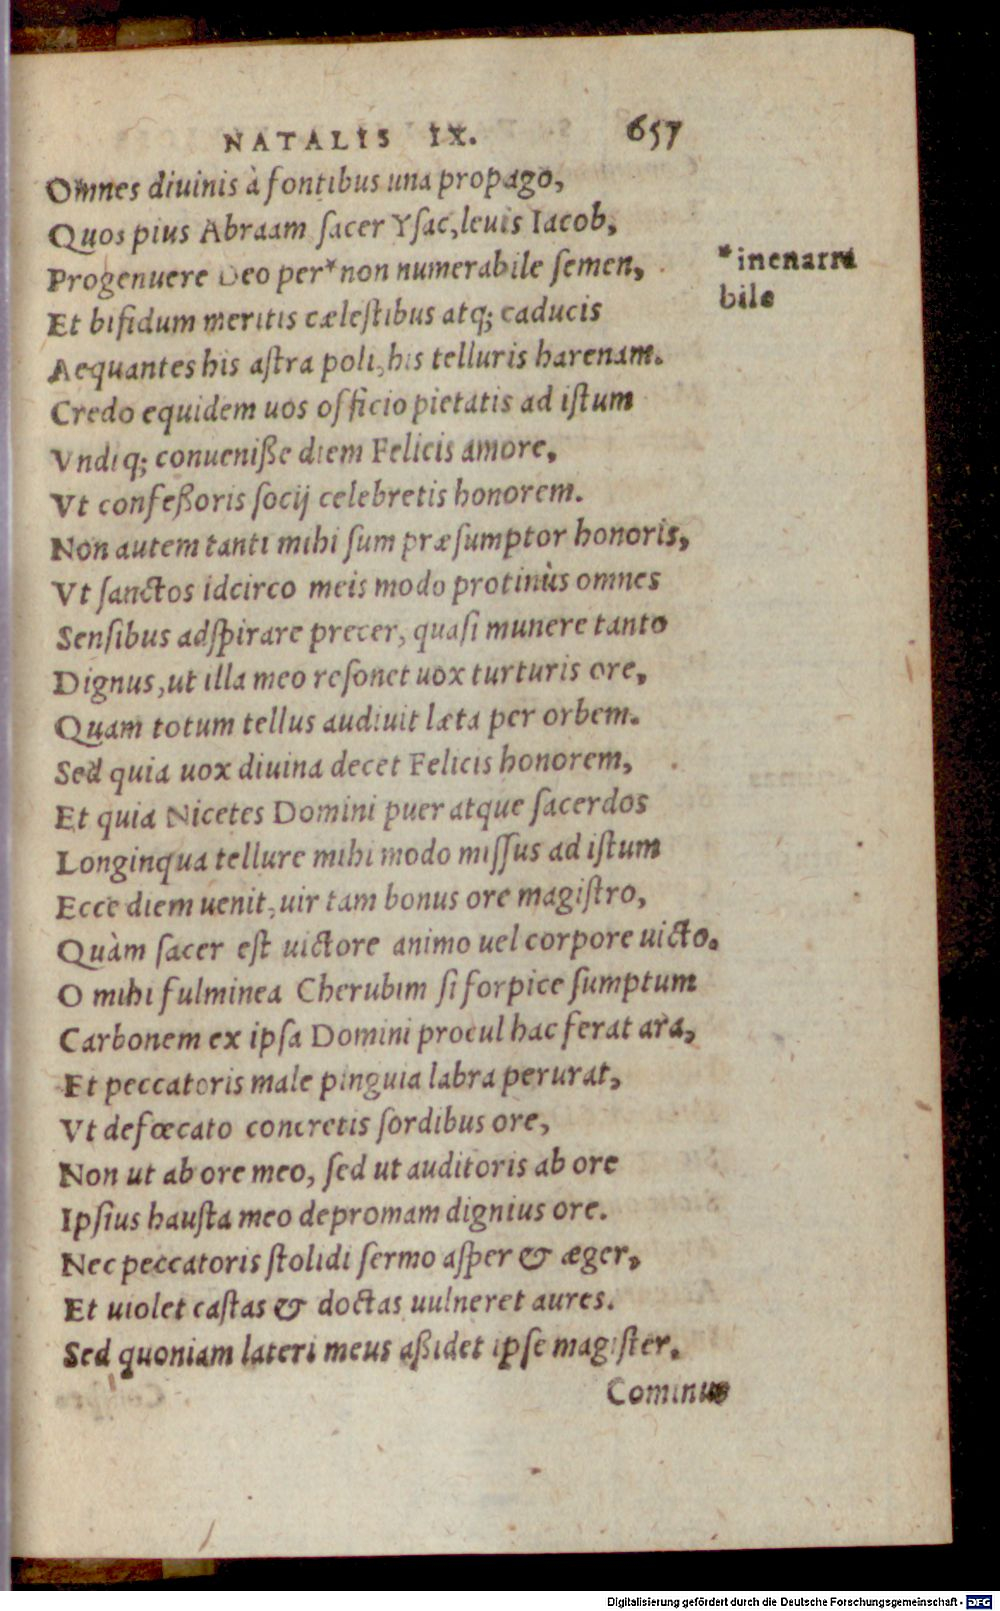 NATALIS IX. 657
Omnes diuinis à fontibus una propago,
Quos pius Abraam sacer Ysac, leuis Iacob,
Progenuere Deo per* non numerabile semen,
*inenarra
bile
Et bifidum meritis cælestibus atq; caducis
Aequantes his astra poli, his telluris harenam.
Credo equidem uos officio pietatis ad istum
Vndiq; conuenisse diem Felicis amore,
Vt confessoris socij celebretis honorem.
Non autem tanti mihi sum præsumptor honoris,
Vt sanctos idcirco meis modo protinùs omnes
Sensibus adspirare precer, quasi munere tanto
Dignus, ut illa meo resonet uox turturis ore,
Quam totum tellus audiuit læta per orbem.
Sed quia uox diuina decet Felicis honorem,
Et quia Nicetes Domini puer atque sacerdos
Longinqua tellure mihi modo missus ad istum
Ecce diem uenit, uir tam bonus ore magistro,
Quàm sacer est uictore animo uel corpore uicto.
O mihi fulminea Cherubim si forpice sumptum
Carbonem ex ipsa Domini procul hac ferat ara,
Et peccatoris male pinguia labra perurat,
Vt defœcato concretis sordibus ore,
Non ut ab ore meo, sed ut auditoris ab ore
Ipsius hausta meo depromam dignius ore.
Nec peccatoris stolidi sermo asper & æger,
Et uiolet castas & doctas uulneret aures.
Sed quoniam lateri meus assidet ipse magister.
Cominus
Digitalisierung gefördert durch die Deutsche Forschungsgemeinschaft - DFG